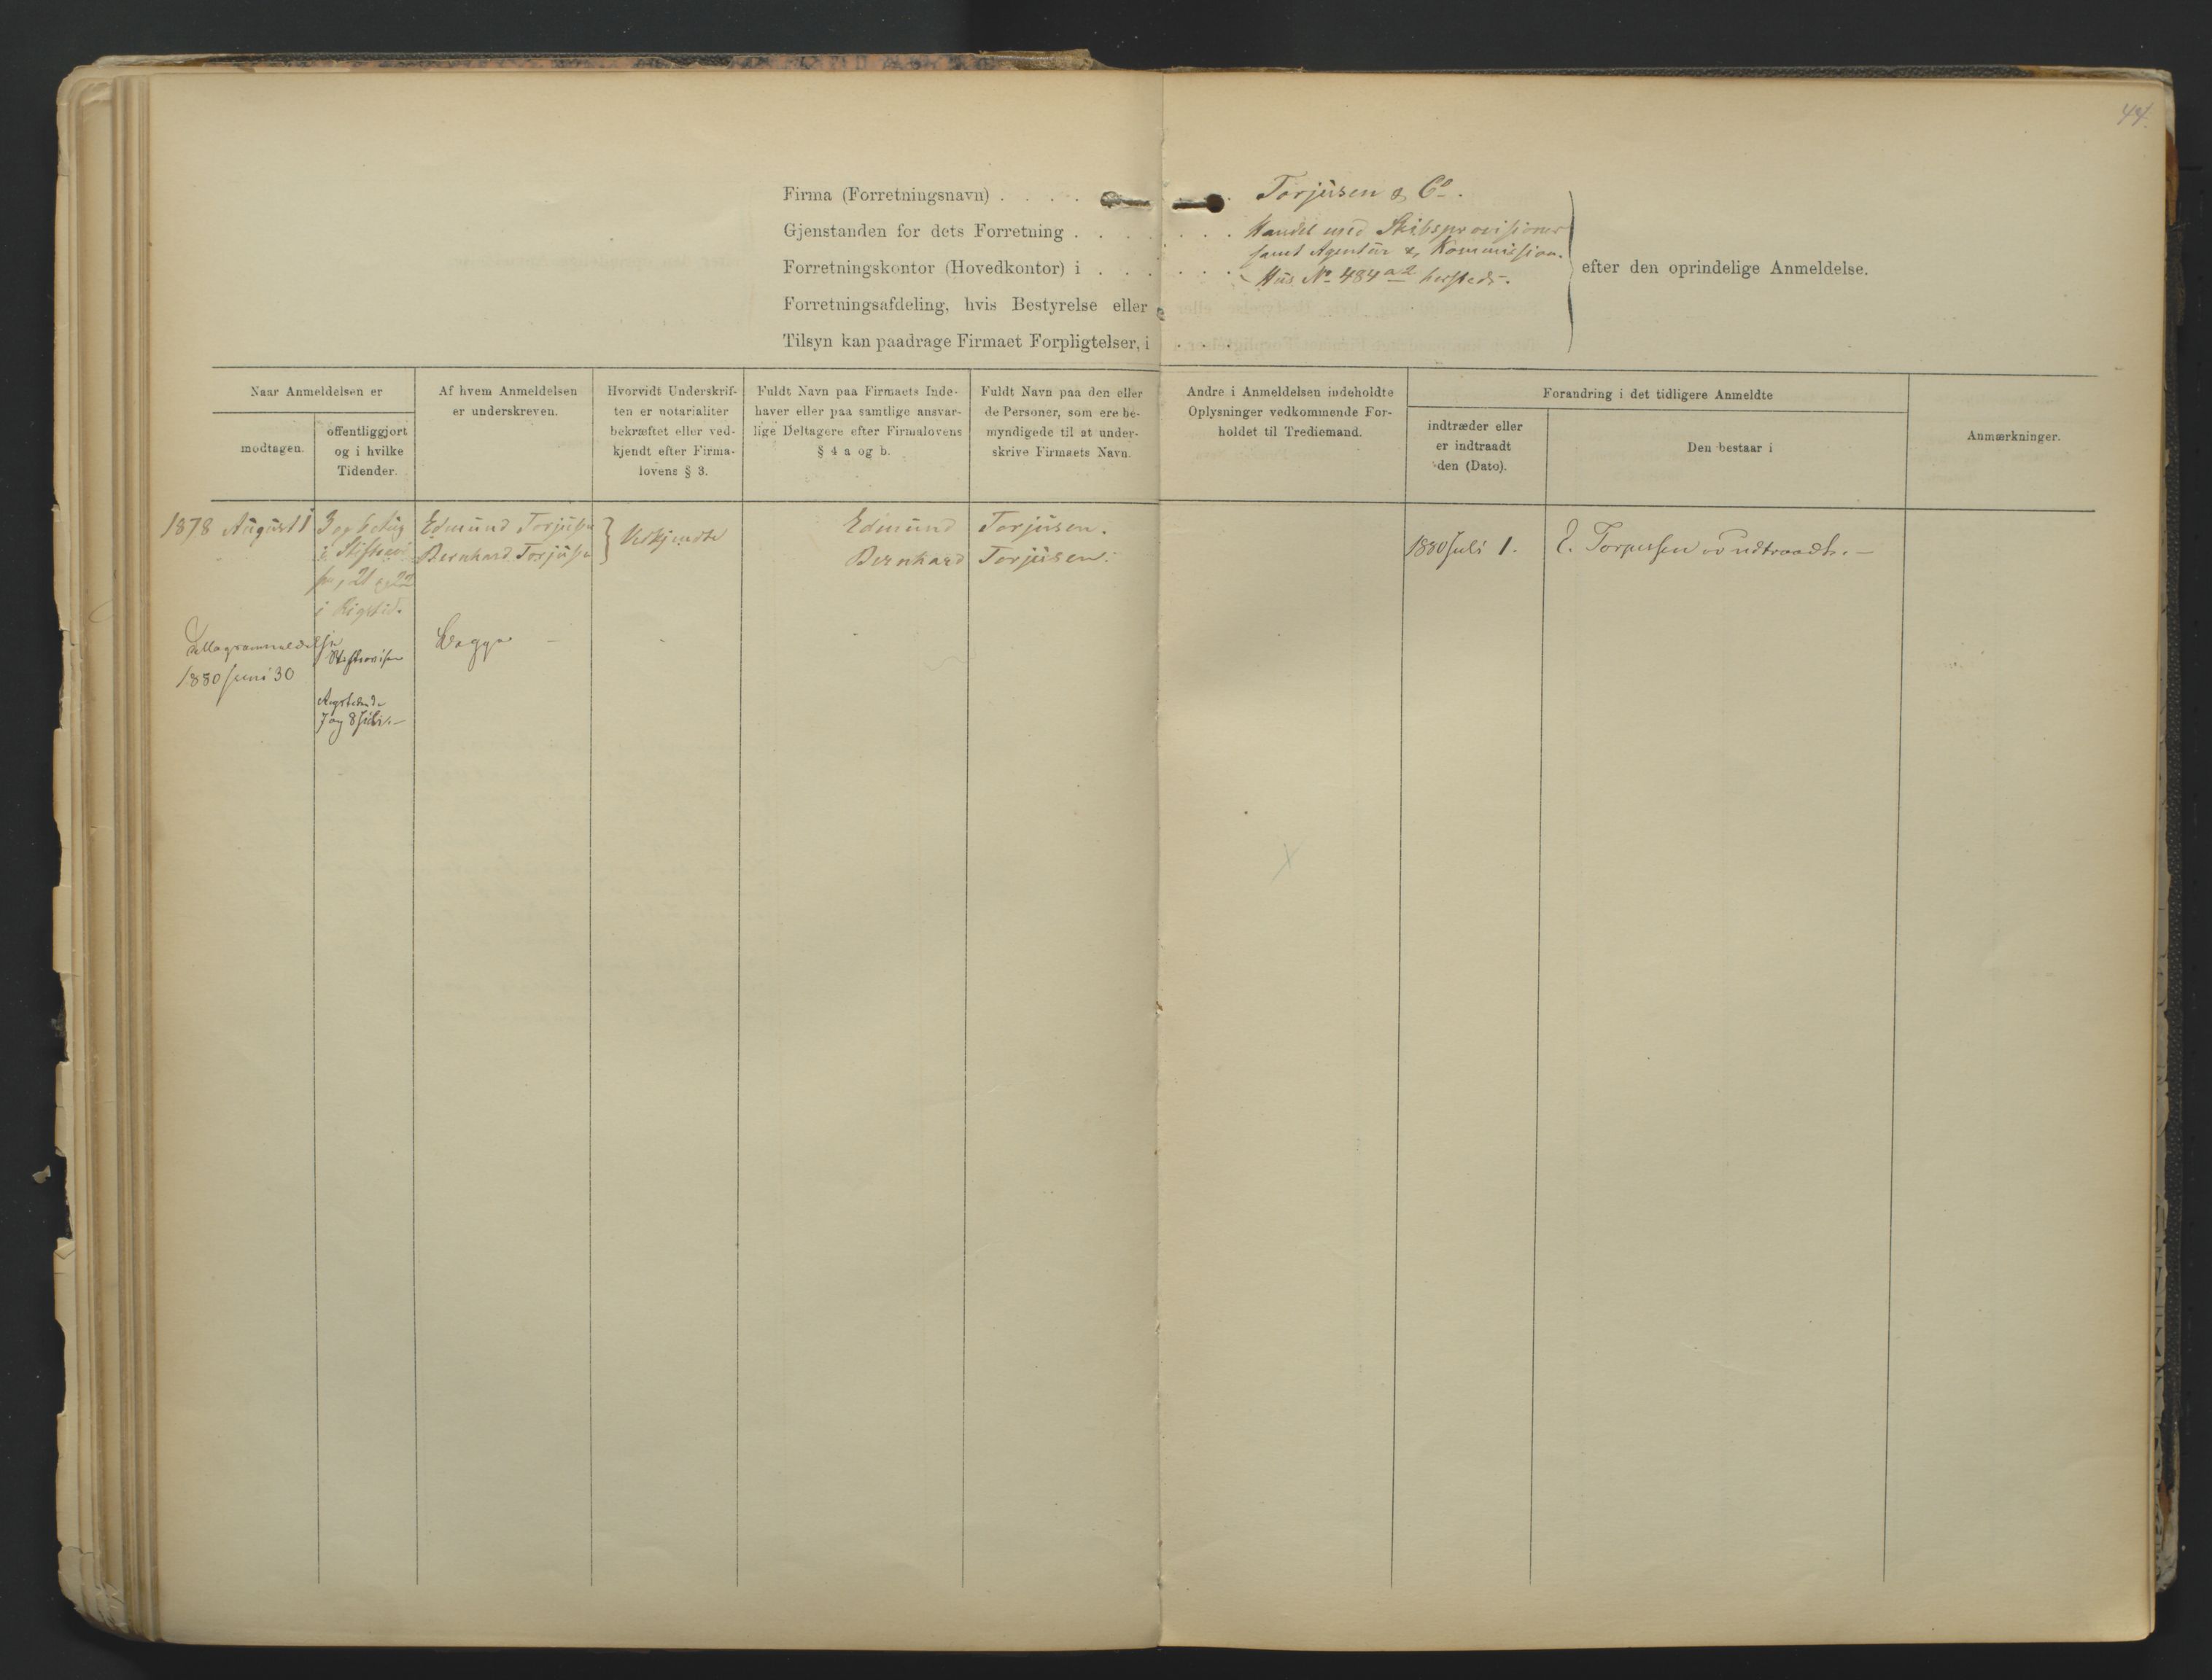 44.
Firma (Forretningsnavn) . . . . . Torjusen & Co.
Gjenstanden for dets Forretning . . . . . . . Handel med Skibsprovisioner
samt Agentur & Kommission.
Forretningskontor (Hovedkontor) i . . . . . . Hus No 484 a2 hersteds.
efter den oprindelige Anmeldelse.
Forretningsafdeling, hvis Bestyrelse eller
Tilsyn kan paadrage Firmaet Forpligtelser, i . . .
Naar Anmeldelsen er
modtagen.
offentliggjort
og i hvilke
Tidender.
Af hvem Anmeldelsen
er underskreven.
Hvorvidt Underskrif-
ten er notarialiter
bekræftet eller ved-
kjendt efter Firma-
lovens § 3.
Fuldt Navn paa Firmaets Inde-
haver eller paa samtlige ansvar-
lige Deltagere efter Firmalovens
§ 4 a og b.
Fuldt Navn paa den eller
de Personer, som ere be-
myndigede til at under-
skrive Firmaets Navn.
Andre i Anmeldelsen indeholdte
Oplysninger vedkommende For-
holdet til Trediemand.
Forandring i det tidligere Anmeldte
indtræder eller
er indtraadt
den (Dato).
Den bestaar i
Anmærkninger.
1878 August 1
3 og 6 Aug
i Stiftsavi
sen, 21 og 22
i Rigstid.
Edmund Torjusen
Bernhard Torjusen
Vedkjendte
Edmund Torjusen.
Bernhard Torjusen.
1880 Juli 1.
E. Torjusen udtraadt.
1880 Juni 30
Stiftsavisen
Rigstidende
7 og 8 Juli.
Begge